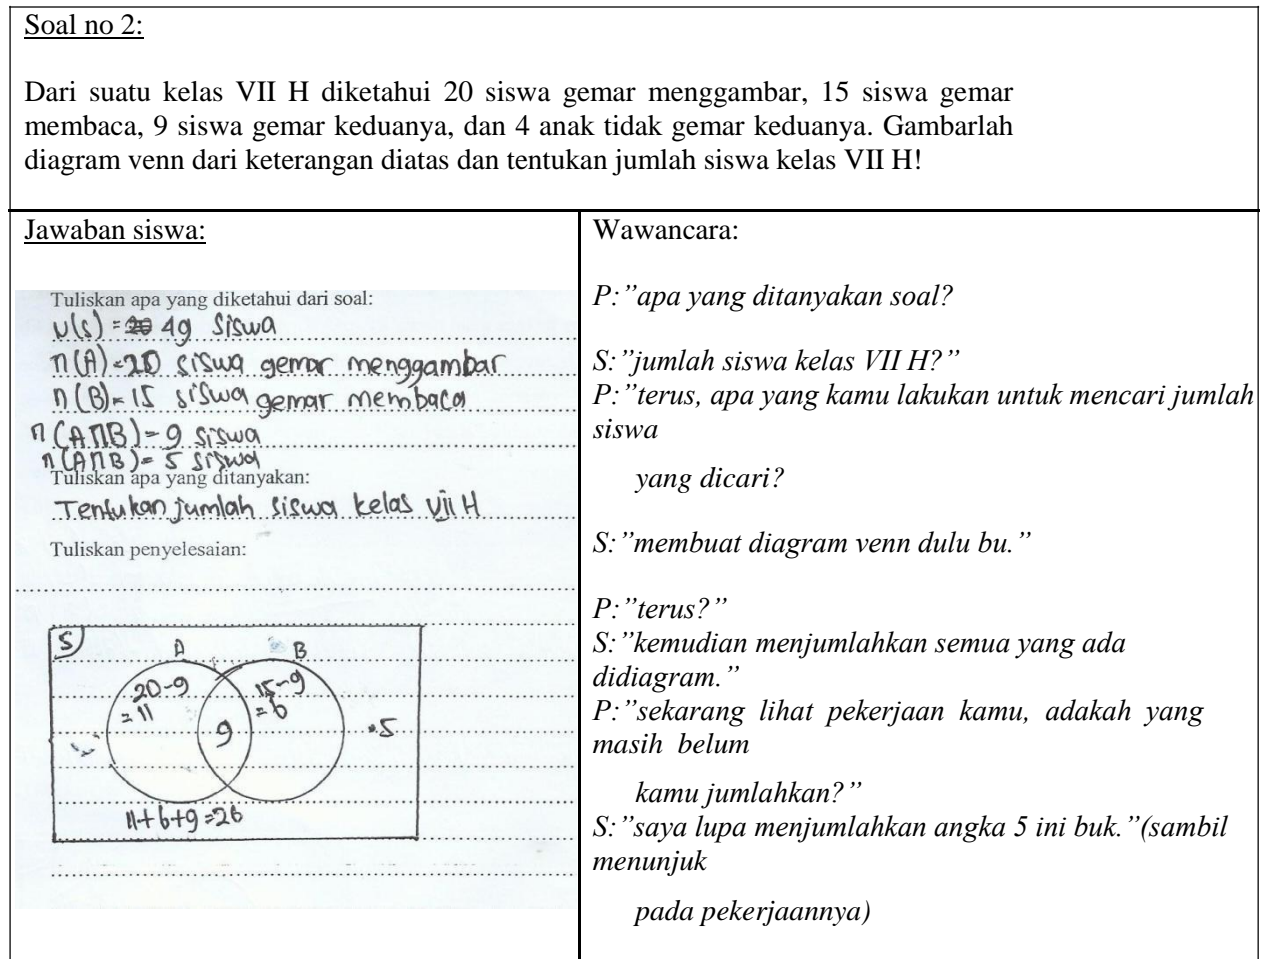 Soal no 2:
Dari suatu kelas VII H diketahui 20 siswa gemar menggambar, 15 siswa gemar
membaca, 9 siswa gemar keduanya, dan 4 anak tidak gemar keduanya. Gambarlah
diagram venn dari keterangan diatas dan tentukan jumlah siswa kelas VII H!
Jawaban siswa:
Tuliskan apa yang diketahui dari soal:
n(s) = 49 siswa
n(A) = 20 siswa gemar menggambar
n(B) = 15 siswa gemar membaca
n(A∩B) = 9 siswa
n(A∩B) = 5 siswa
Tuliskan apa yang ditanyakan:
Tentukan jumlah siswa kelas VII H
Tuliskan penyelesaian:
S
A B
20-9 15-9
=11 =6
9 •5
11+6+9=26
Wawancara:
P:”apa yang ditanyakan soal?
S:”jumlah siswa kelas VII H?”
P:”terus, apa yang kamu lakukan untuk mencari jumlah
siswa
yang dicari?
S:”membuat diagram venn dulu bu.”
P:”terus?”
S:”kemudian menjumlahkan semua yang ada
didiagram.”
P:”sekarang lihat pekerjaan kamu, adakah yang
masih belum
kamu jumlahkan?”
S:”saya lupa menjumlahkan angka 5 ini buk.”(sambil
menunjuk
pada pekerjaannya)